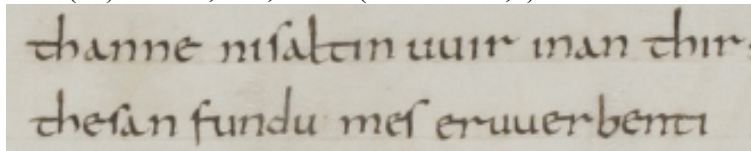 thanne nisaltin uuir inan thir
thesan fundu mes eruuerbenti